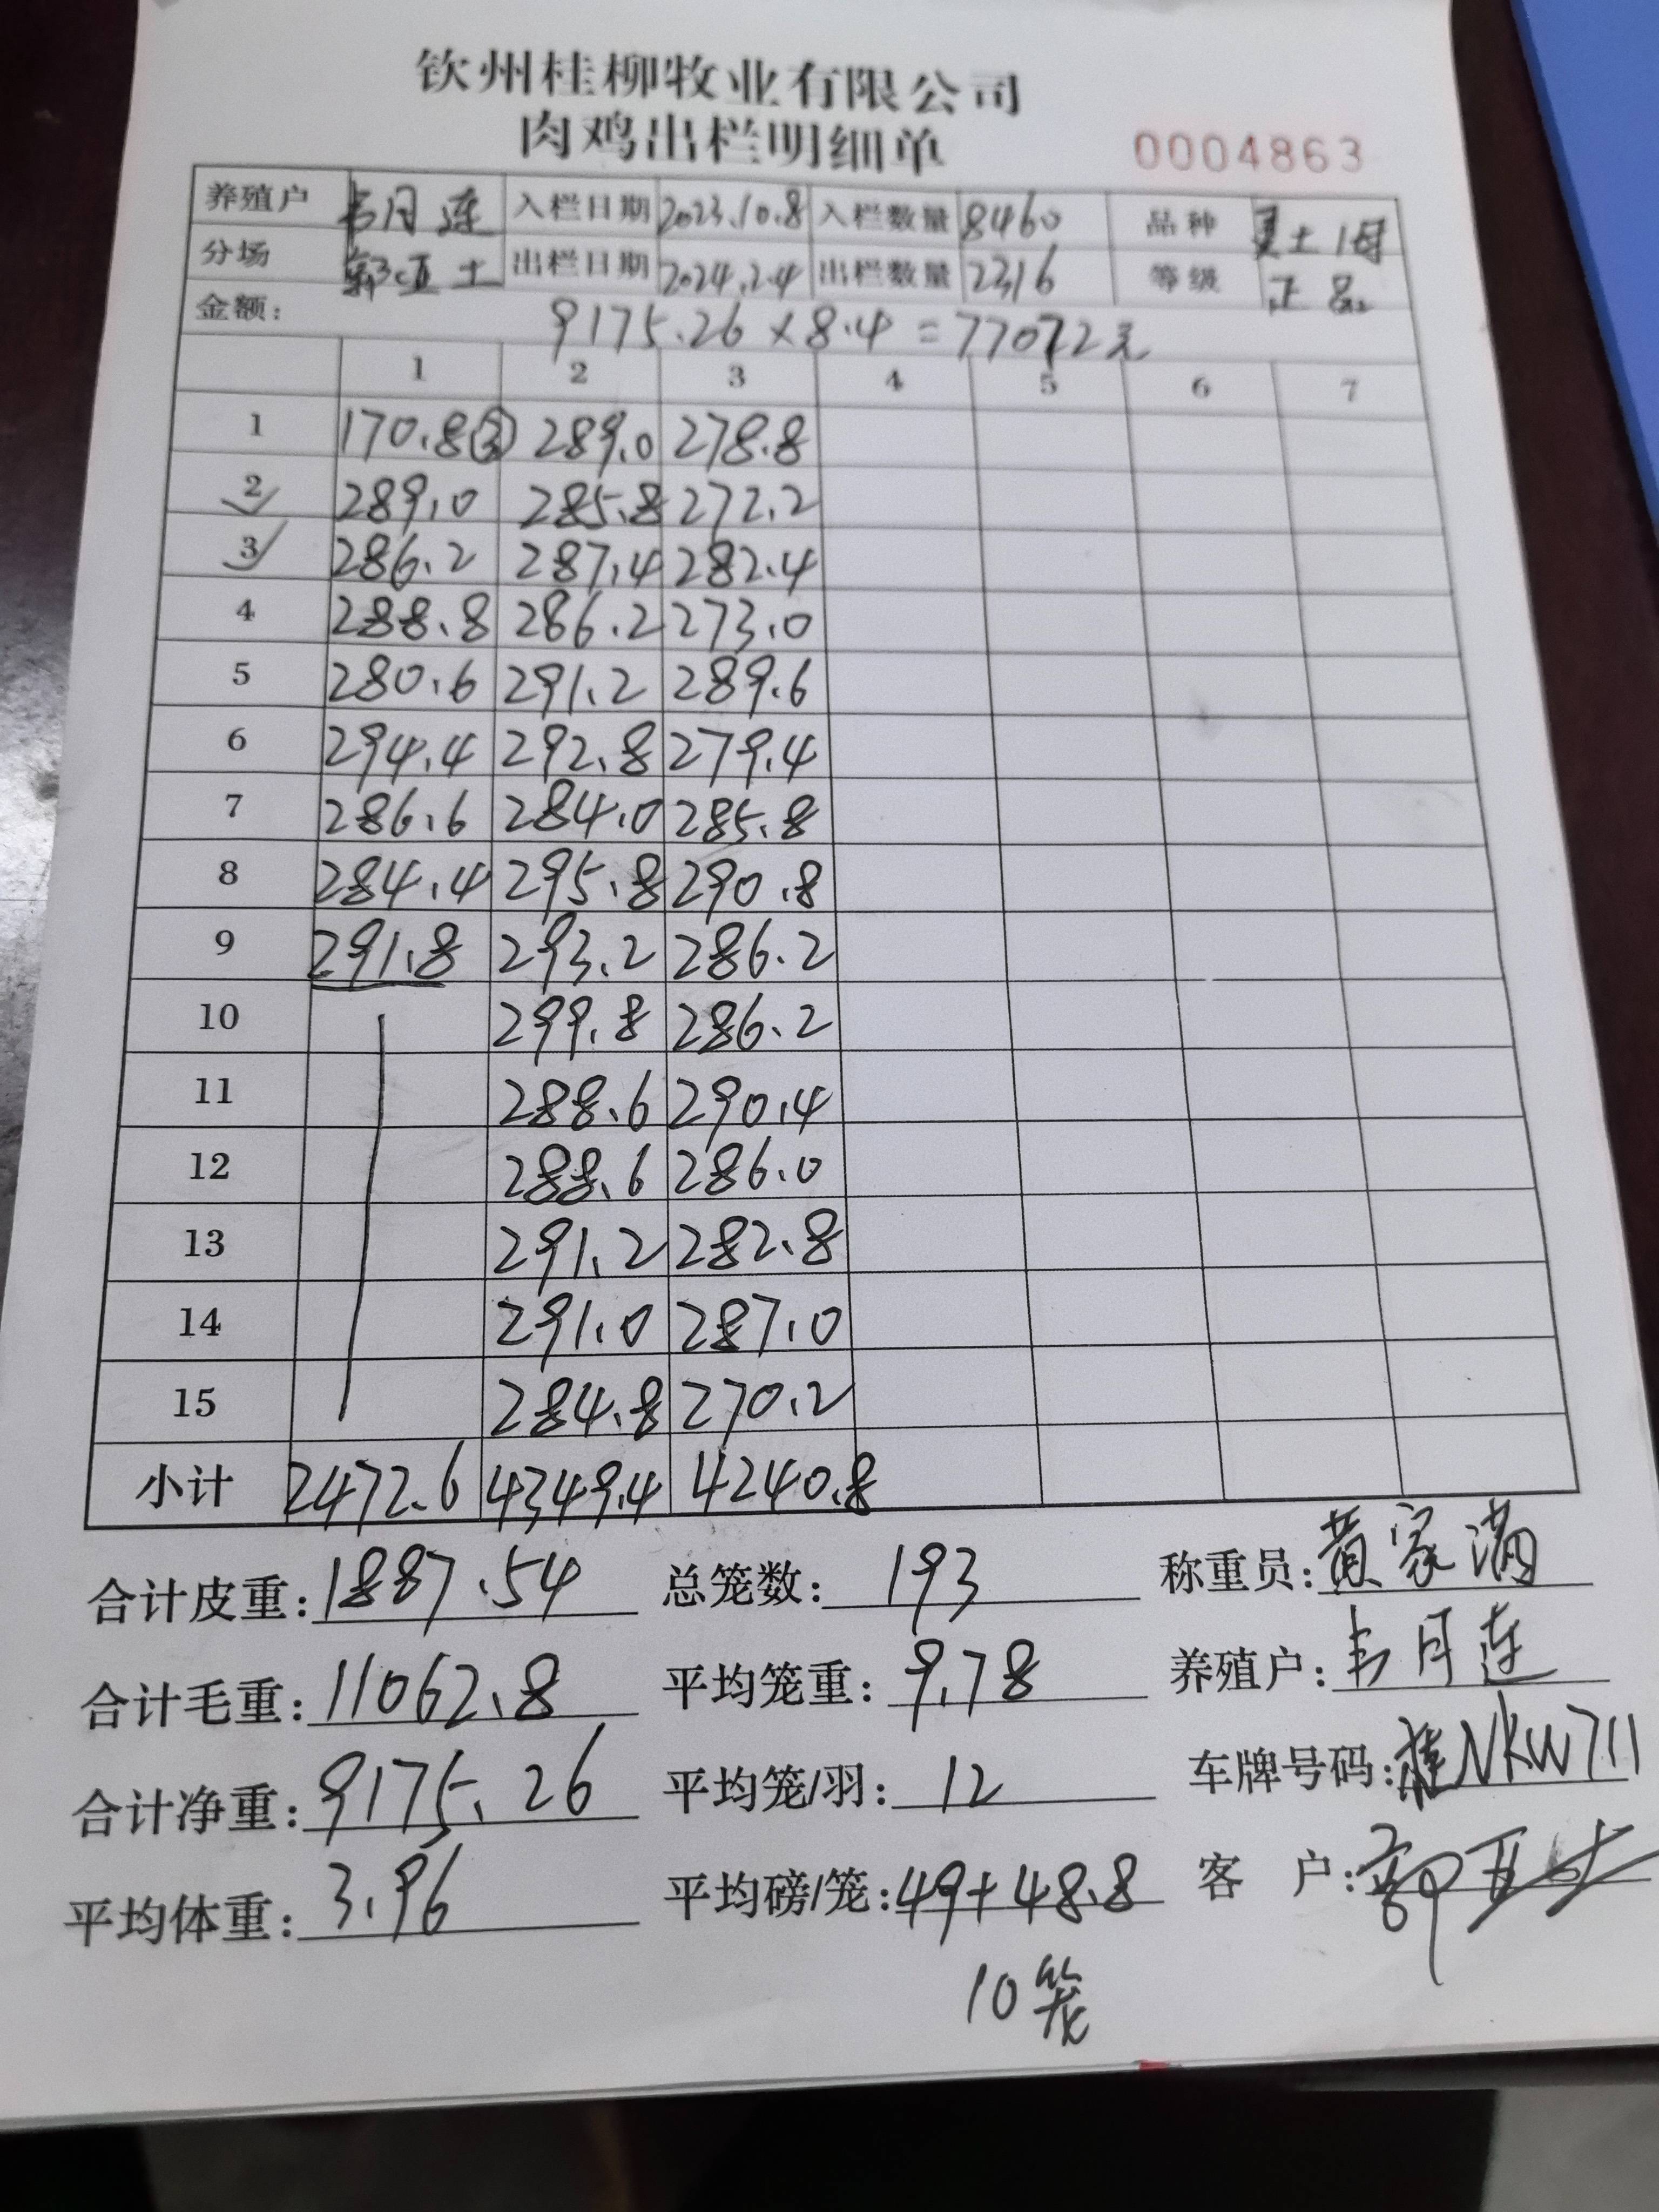 钦州桂柳牧业有限公司
肉鸡出栏明细单 0004863
养殖户 韦月连 入栏日期 2023.10.8 入栏数量 8460 品种 土1母
分场 亚土 出栏日期 2024.2.4 出栏数量 2316 等级 正品
金额: 9175.26×8.4=77072元
1 2 3 4 5 6 7
1 170.8③ 289.0 278.8
2 289.0 285.8 272.2
3 286.2 287.4 282.4
4 288.8 286.2 273.0
5 280.6 291.2 289.6
6 294.4 292.8 279.4
7 286.6 284.0 285.8
8 284.4 295.8 290.8
9 291.8 293.2 286.2
10 299.8 286.2
11 288.6 290.4
12 288.6 286.0
13 291.2 282.8
14 291.0 287.0
15 284.8 270.2
小计 2472.6 4349.4 4240.8
合计皮重: 1887.54 总笼数: 193 称重员: 黄家满
合计毛重: 11062.8 平均笼重: 9.78 养殖户: 韦月连
合计净重: 9175.26 平均笼/羽: 12 车牌号码: 桂NKW711
平均体重: 3.96 平均磅/笼: 49+48.8 客 户:
10笼